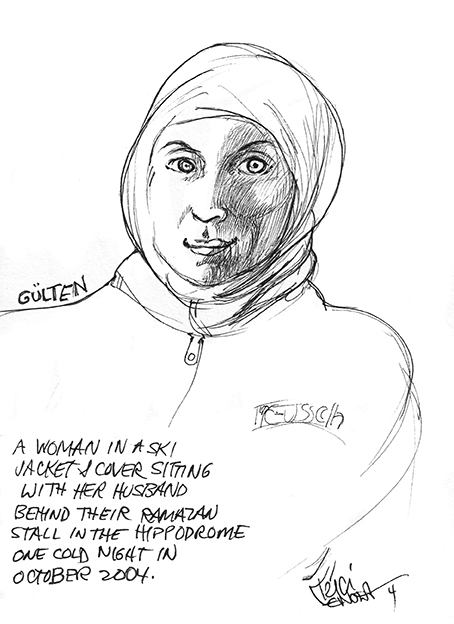 GÜLTEN
REUSCH
A WOMAN IN A SKI
JACKET & COVER SITTING
WITH HER HUSBAND
BEHIND THEIR RAMAZAN
STALL IN THE HIPPODROME
ONE COLD NIGHT IN
OCTOBER 2004.
4